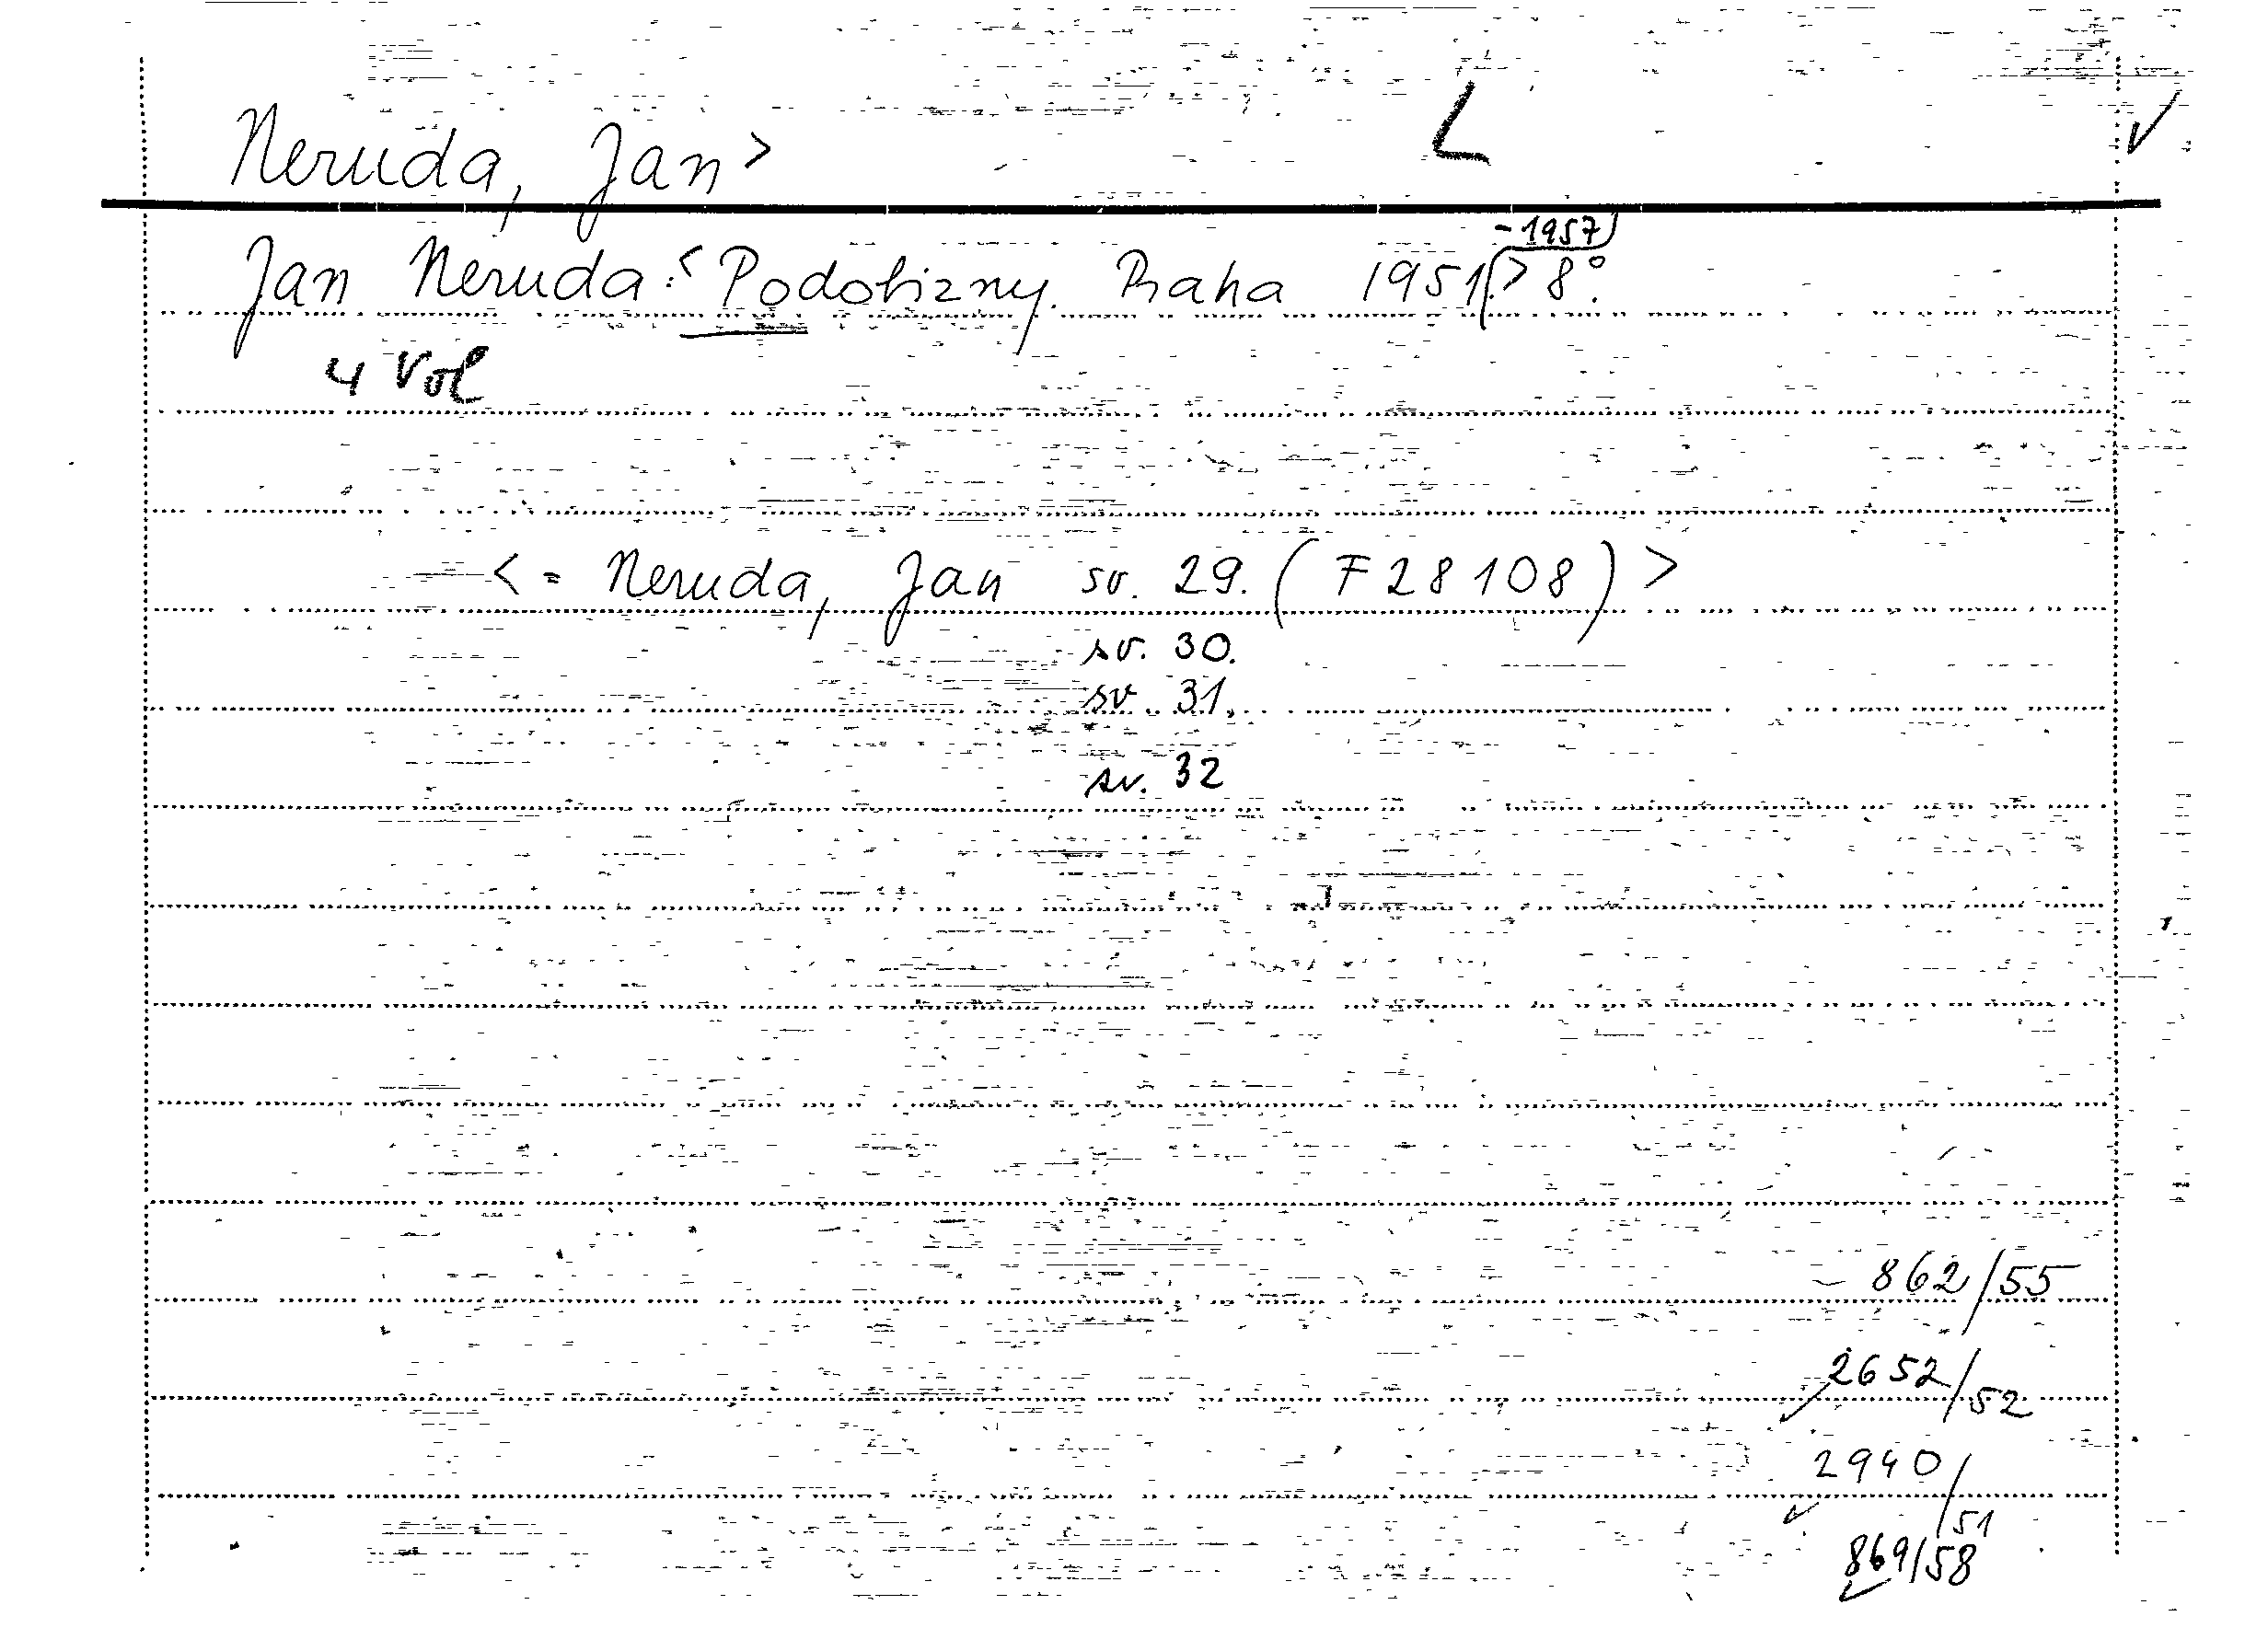 Neruda, Jan > L ✓
Jan Neruda: < Podobizny. Praha 1951 - 1957 .> 8°.
4 Vol
< = Neruda, Jan sv. 29. (F 28108) >
sv. 30.
sv. 31.
sv. 32
862/55
2652/52
2940/51
869/58